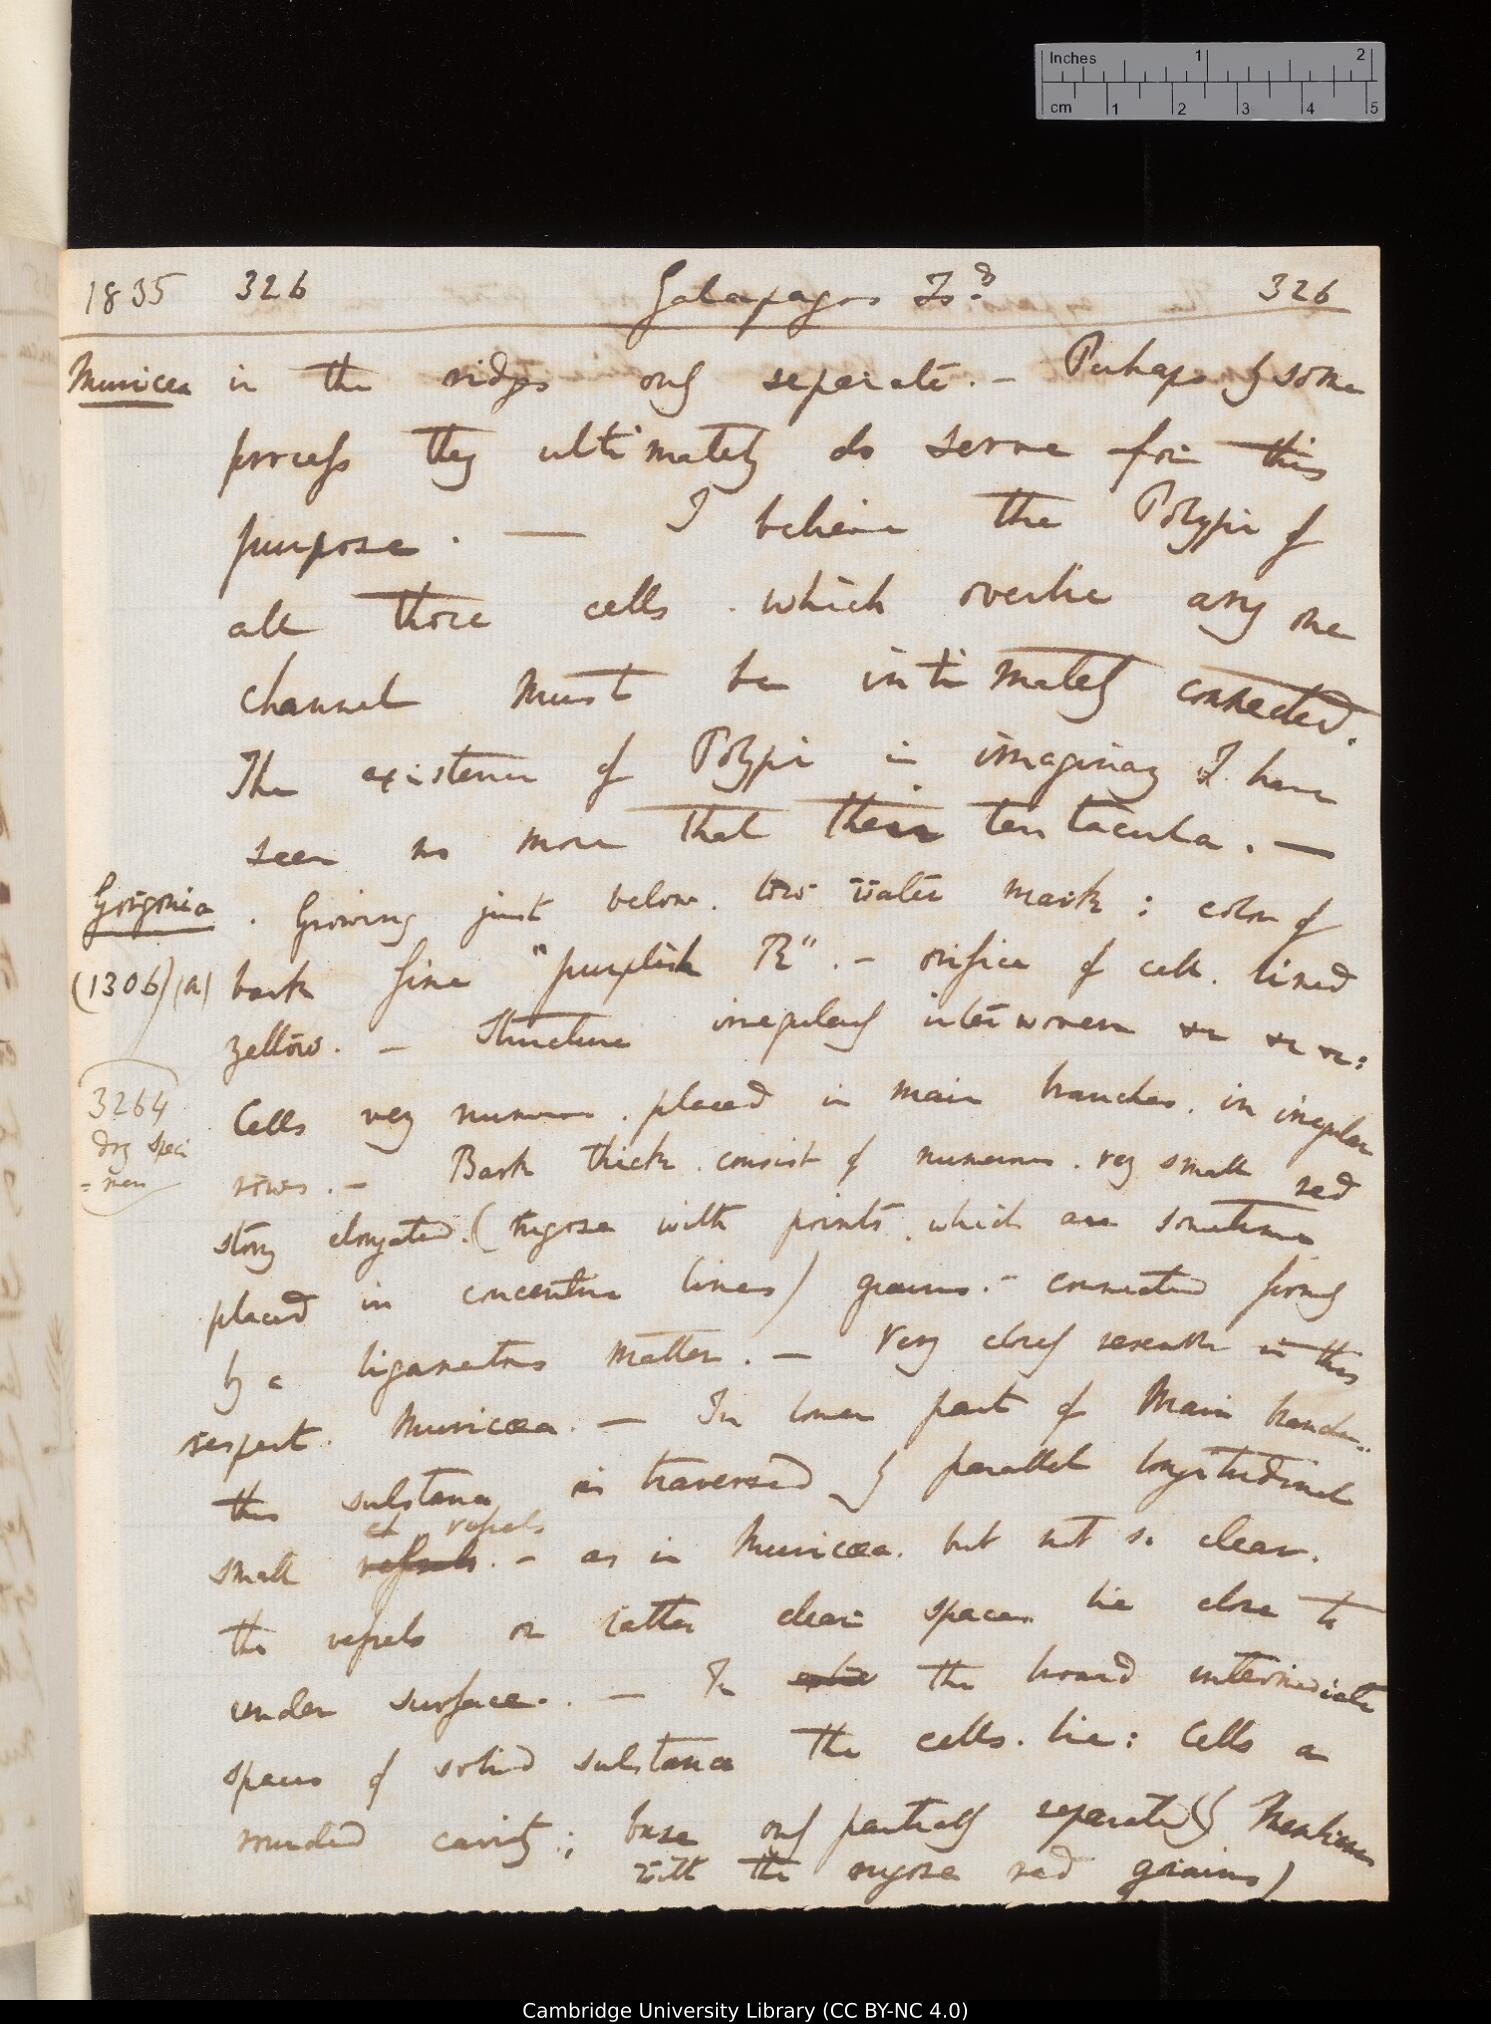 Inches 1 2
cm 1 2 3 4 5
1835 326 Galapagos Isd. 326
Muricea in the ridges only separate. — Perhaps by some
process they ultimately do serve for this
purpose. — I believe the Polypi of
all those cells which overlie any one
channel must be intimately connected.
The existence of Polypi is imaginary I have
seen no more that their tentacula. —
Gorgonia . Growing just below low water mark: color of
(1306) (a) bark fine "purplish R". — orifice of cell lined
yellow. — Structure irregularly interwoven &c &c &c:
3264
dry speci
= men
Cells very numerous. placed in main branches. in irregular
rows. — Bark thick. consist of numerous. very small red
stony elongated. (rugose with points. which are sometimes
placed in concentric lines) grains. — connected firmly
by a ligamentous matter. — Very closely resemble in this
respect. Muricæa. — In lower part of Main branches
this substance is traversed by parallel longitudinal
vessels
small vessels. — as in Muricæa. but not so clear.
the vessels or rather clear spaces lie close to
under surface. — In the broad intermediate
spaces of solid substance the cells. lie: Cells a
rounded cavity; base only partially separated (by Membrane
with the rugose red grains)
Cambridge University Library (CC BY-NC 4.0)